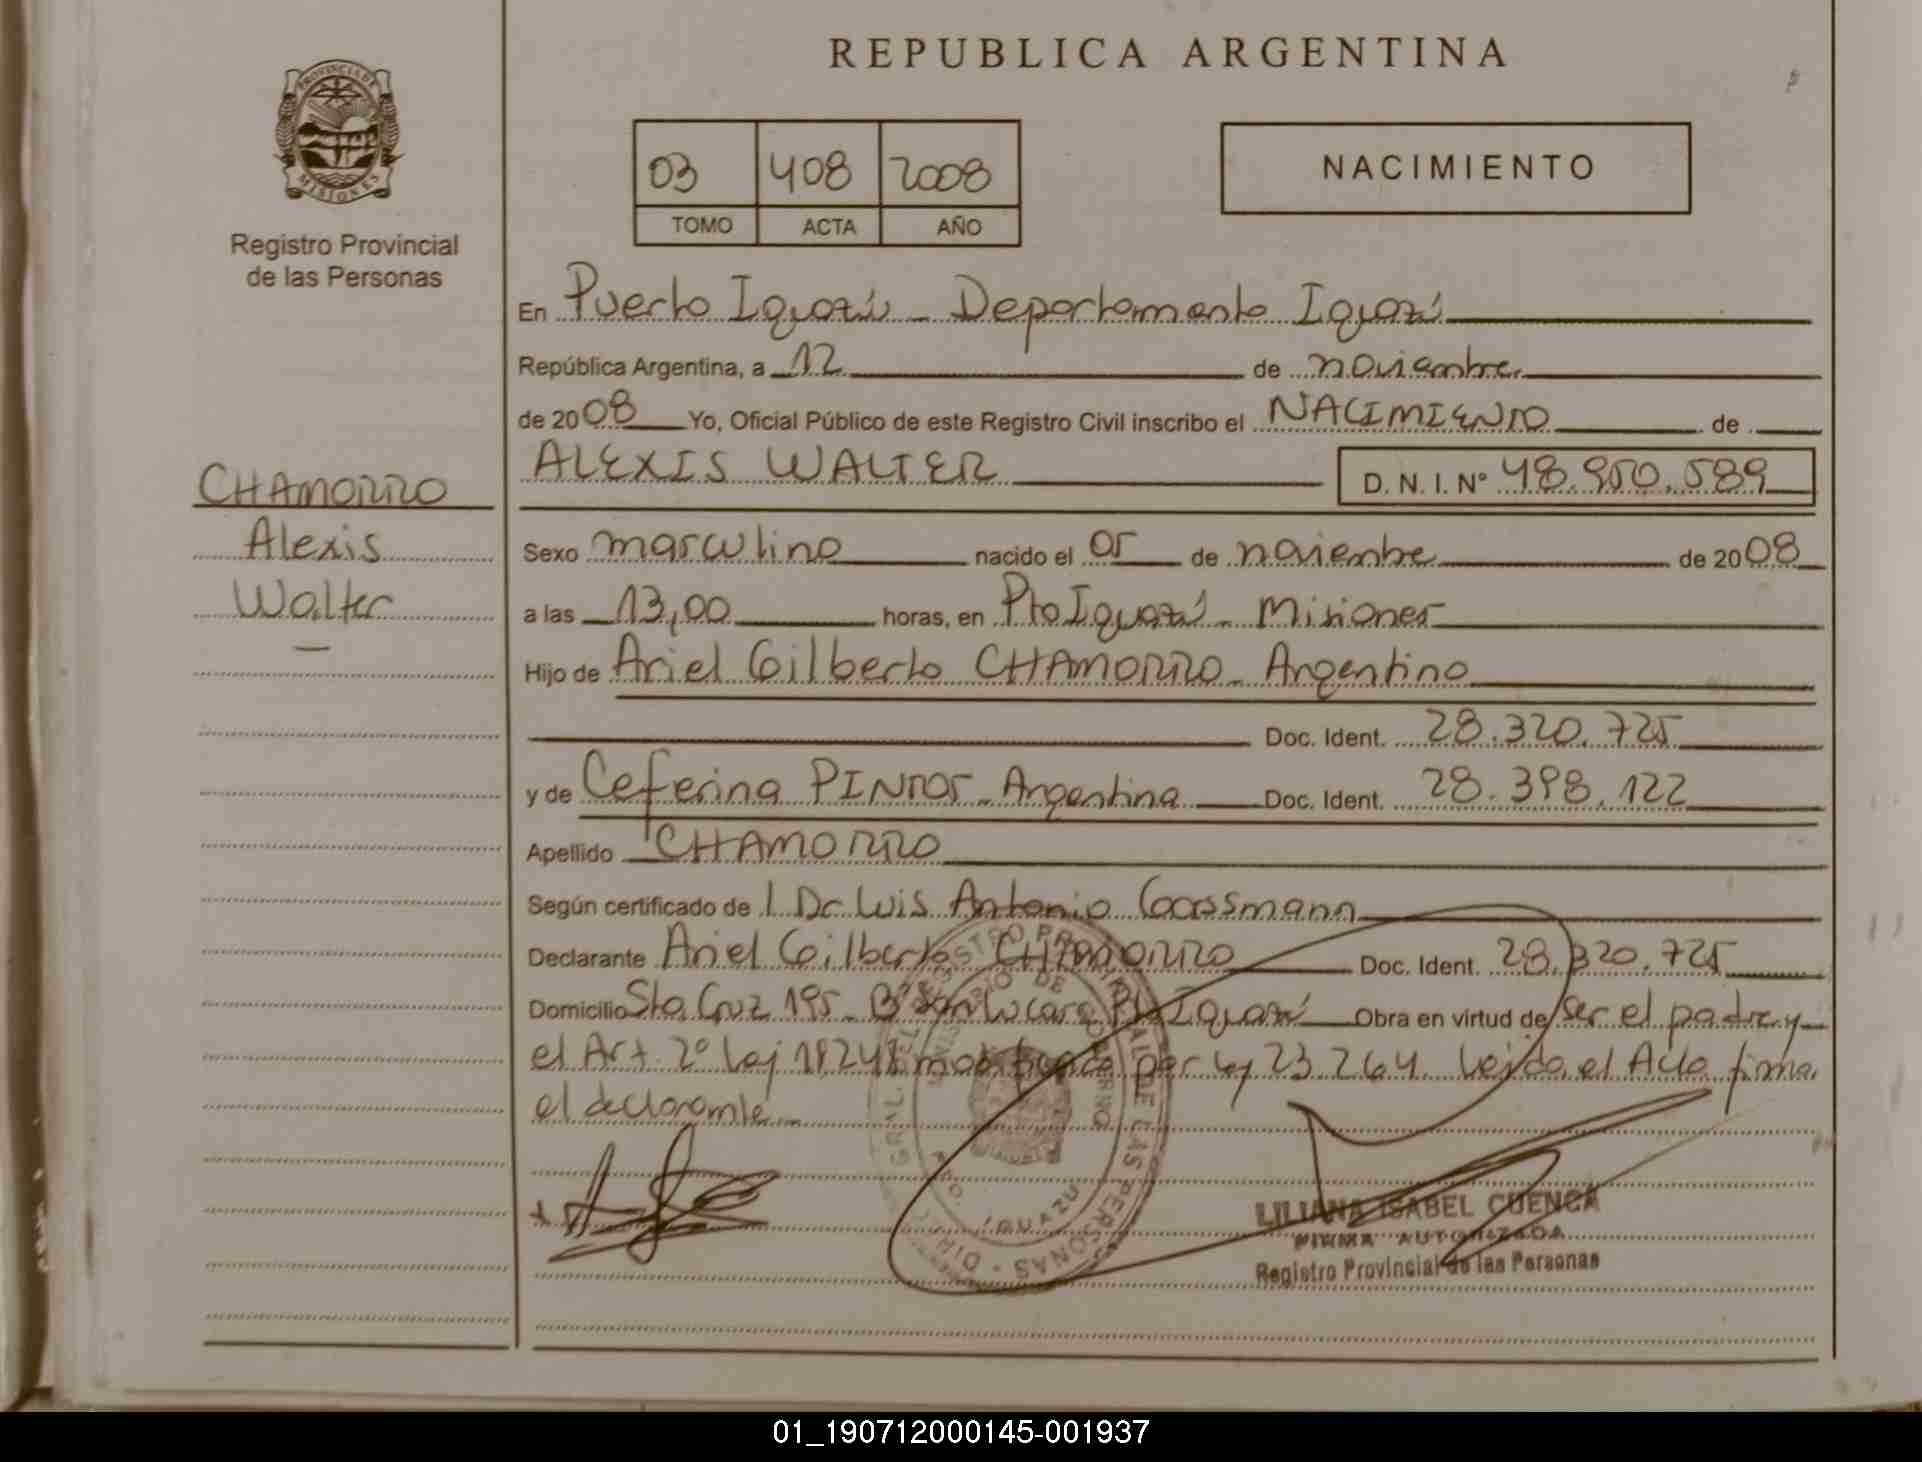 REPUBLICA ARGENTINA
PROVINCIA DE
MISIONES
Registro Provincial
de las Personas
03 408 2008
TOMO ACTA AÑO
NACIMIENTO
En Puerto Iguazú - Departamento Iguazú
República Argentina, a 12 de noviembre
de 2008 Yo, Oficial Público de este Registro Civil inscribo el NACIMIENTO de
ALEXIS WALTER D. N. I. N° 48.950.589
CHAMORRO
Alexis
Walter
Sexo masculino nacido el 05 de noviembre de 2008
a las 13,00 horas, en Pto Iguazú - Misiones
Hijo de Ariel Gilberto CHAMORRO - Argentino
Doc. Ident. 28.320.725
y de Ceferina PINTOS - Argentina Doc. Ident. 28.398.122
Apellido CHAMORRO
Según certificado de l Dr Luis Antonio
Declarante Ariel Gilberto CHAMORRO Doc. Ident. 28.320.725
Domicilio Sta Cruz 195 - Bº San Lucas Pto Iguazú Obra en virtud de ser el padre y
el Art. 2º Ley 18248 modificado por ley 23.264. Leída el Acta firma
el declarante -
DIR. GRAL. DEL REGISTRO PROVINCIAL DE LAS PERSONAS
MINISTERIO DE GOBIERNO
IGUAZU
LILIANA ISABEL CUENCA
FIRMA AUTORIZADA
Registro Provincial de las Personas
01_190712000145-001937